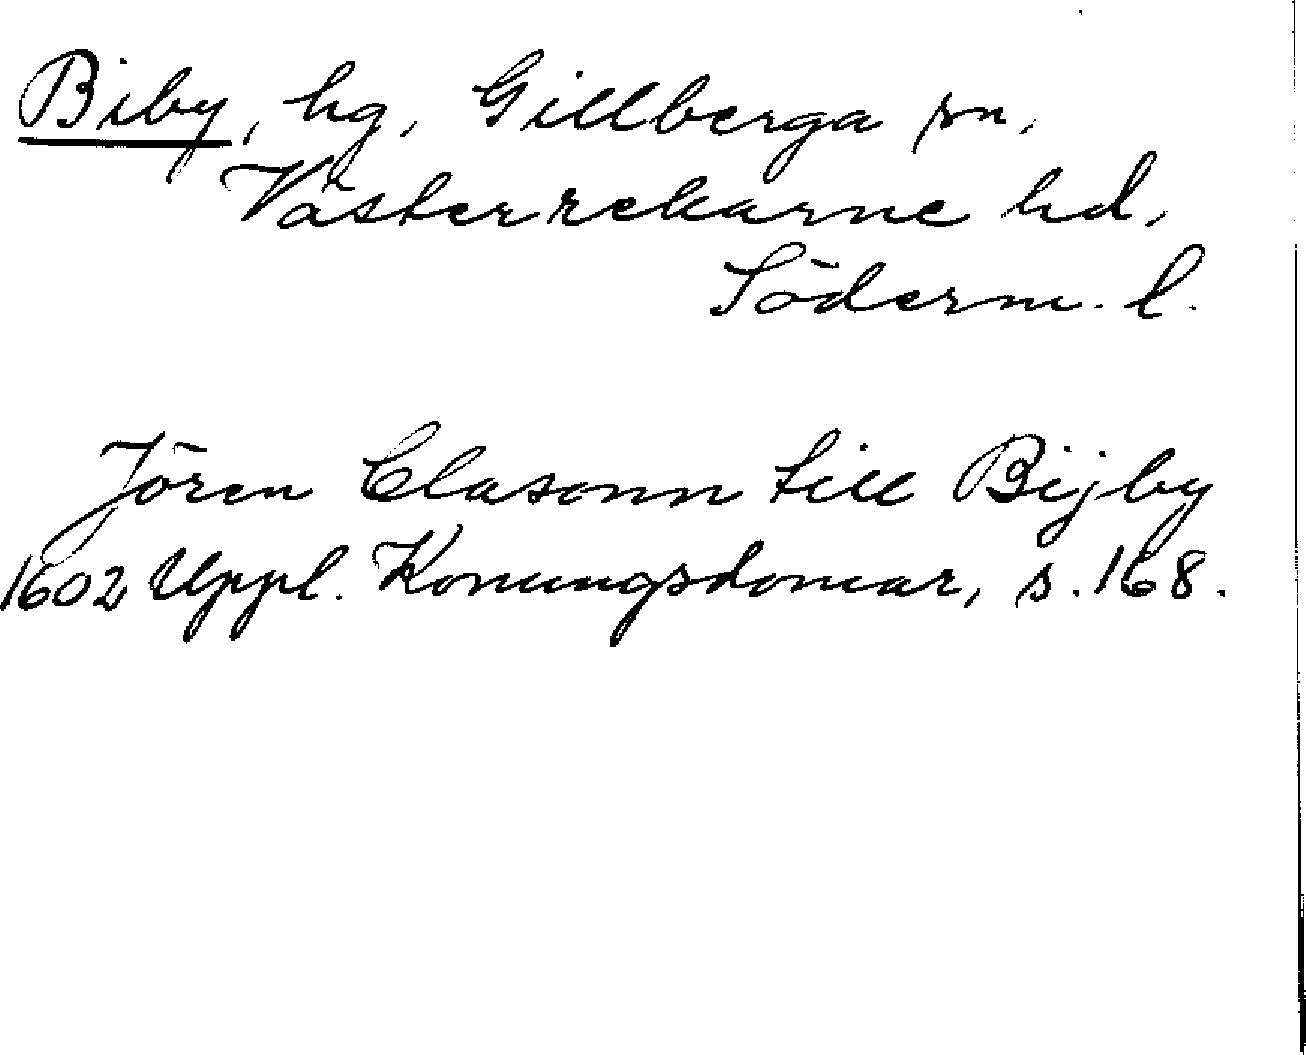 Biby, hg, Gillberga sn,
Västerrekarne hd,
Söderm. l.
Jören Clasonn till Bijby
1602 Uppl. Konungsdomar, s. 168.